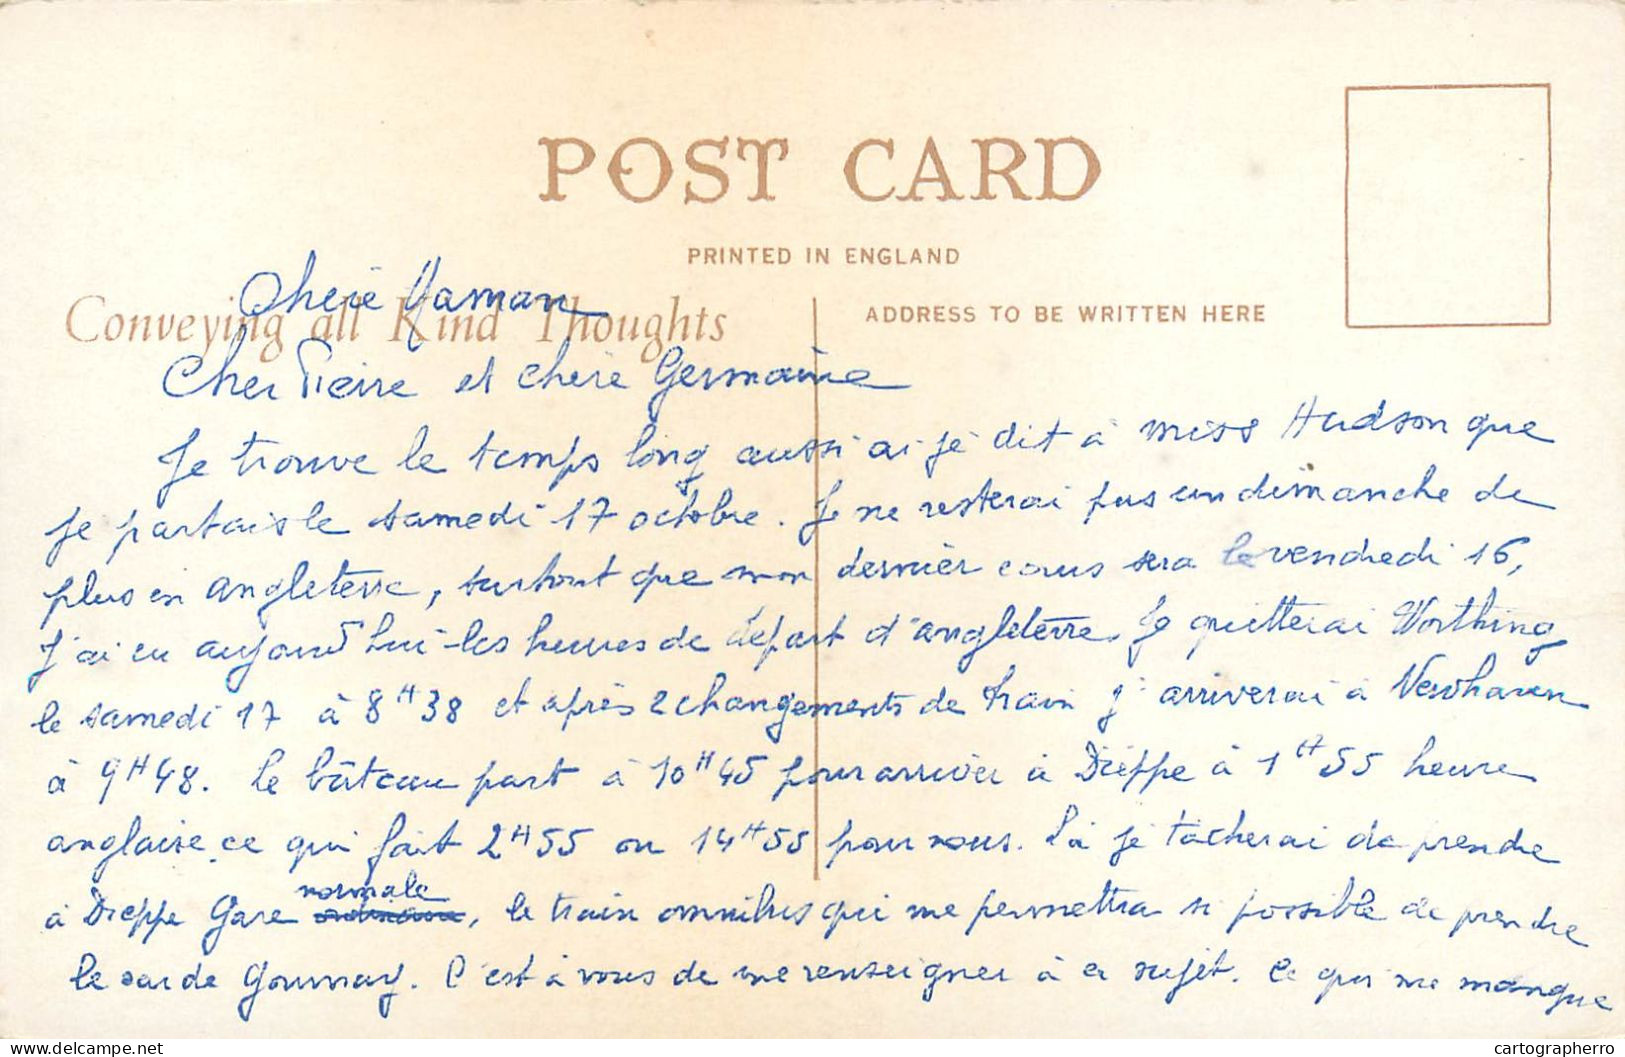 POST CARD
PRINTED IN ENGLAND
Conveying all Kind Thoughts
ADDRESS TO BE WRITTEN HERE
Chère Maman
Cher Pierre et chère Germaine
Je trouve le temps long aussi ai-je dit à miss Hudson que
je partais le samedi 17 octobre. Je ne resterai pas un dimanche de
plus en angleterre, surtout que mon dernier cours sera le vendredi 16,
J'ai eu aujourd'hui les heures de départ d'angleterre. Je quitterai Worthing
le samedi 17 à 8H38 et après 2 changements de train j'arriverai à Newhaven
à 9H48. Le bateau part à 10H45 pour arriver à Dieppe à 1H55 heure
anglaise ce qui fait 2H55 ou 14H55 pour nous. Là je tâcherai de prendre
à Dieppe Gare normale, le train omnibus qui me permettra si possible de prendre
le car de Gournay. C'est à vous de me renseigner à ce sujet. Ce qui me manque
delcampe.net
cartographerro